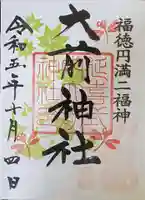 福徳円満二福神
大前神社
令和五年十月四日